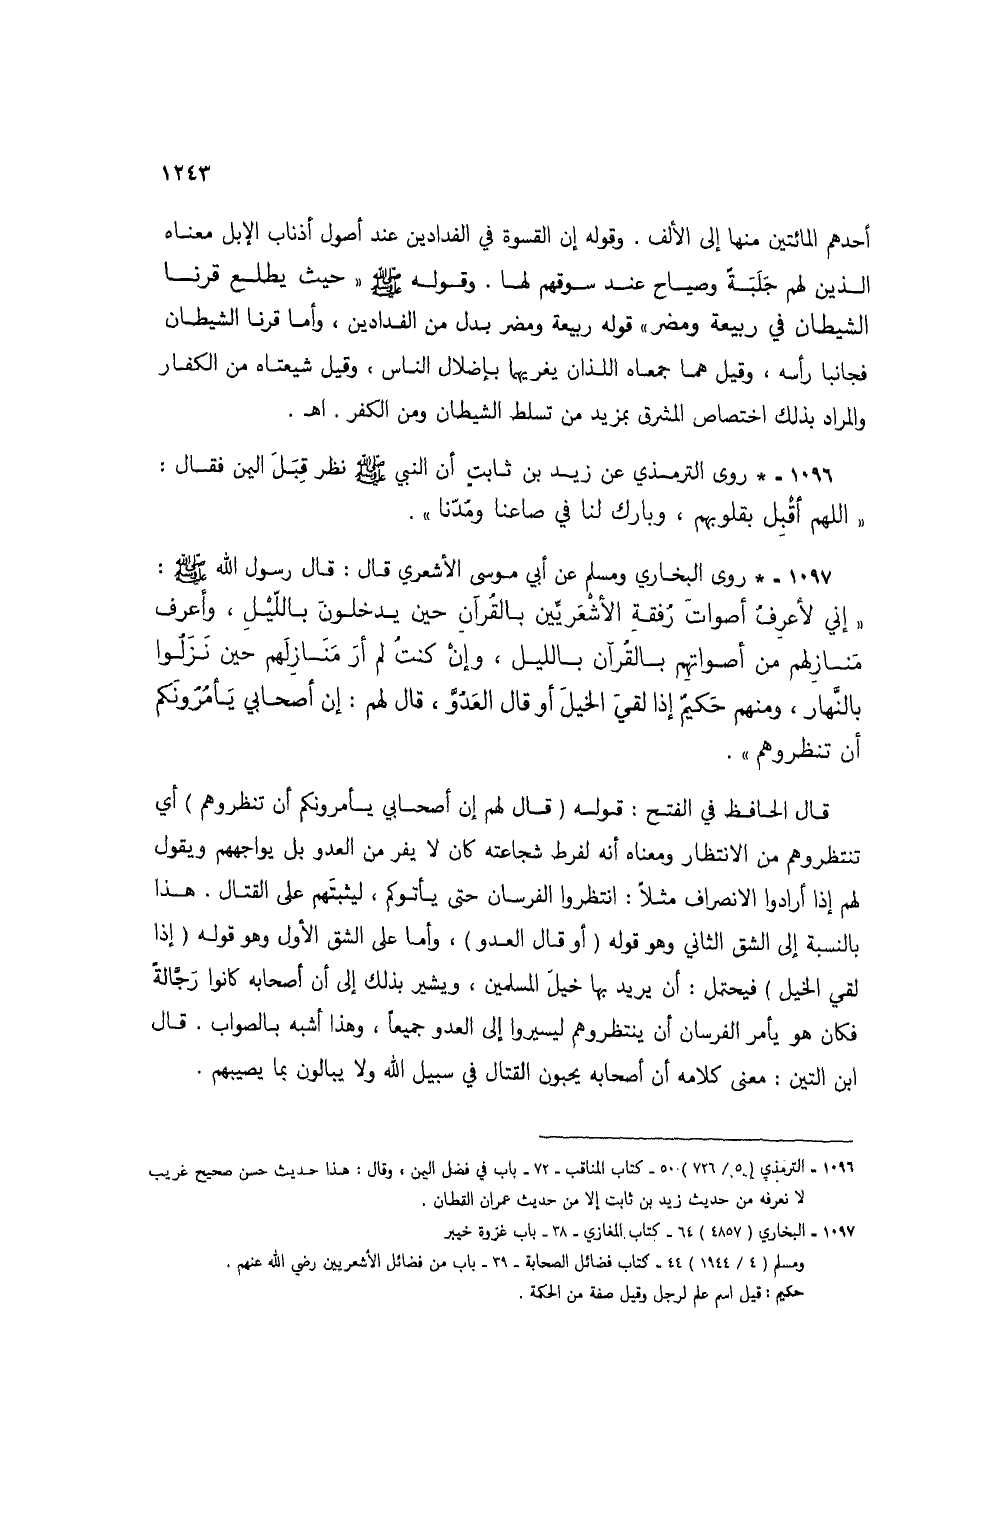 ١٢٤٣
أحدهم المائتين منها إلى الألف . وقوله إن القسوة في الفدادين عند أصول أذناب الإبل معناه
الذين لهم جَلَبَةً وصياح عند سوقهم لها . وقوله ﷺ « حيث يطلع قرنا
الشيطان في ربيعة ومضر » قوله ربيعة ومضر بدل من الفدادين ، وأما قرنا الشيطان
فجانبا رأسه ، وقيل هما جمعاه اللذان يغريهما بإضلال الناس ، وقيل شيعتاه من الكفار
والمراد بذلك اختصاص المشرق بمزيد من تسلط الشيطان ومن الكفر . اهـ .
١٠٩٦ - * روى الترمذي عن زيد بن ثابتٍ أن النبي ﷺ نظر قِبَلَ اليمن فقال :
« اللهم أقْبِل بقلوبهم ، وبارك لنا في صاعنا ومُدّنا » .
١٠٩٧ - * روى البخاري ومسلم عن أبي موسى الأشعري قال : قال رسول الله ﷺ :
« إني لأعرفُ أصواتَ رُفقةِ الأشْعَريِّين بالقُرآنِ حين يدخلونَ باللَّيْلِ ، وأعرف
مَنازِلهم من أصواتِهم بالقُرآن بالليل ، وإنْ كنتُ لم أرَ مَنَازِلَهم حين نَزَلُوا
بالنَّهار ، ومنهم حَكيمٌ إذا لقيَ الخيلَ أو قال العَدُوَّ ، قال لهم : إن أصحابي يَأمُرُونَكم
أن تنظروهم » .
قال الحافظ في الفتح : قوله ( قال لهم إن أصحابي يأمرونكم أن تنظروهم ) أي
تنتظروهم من الانتظار ومعناه أنه لفرط شجاعته كان لا يفر من العدو بل يواجههم ويقول
لهم إذا أرادوا الانصراف مثلاً : انتظروا الفرسان حتى يأتوكم ، ليثبتَهم على القتال . هذا
بالنسبة إلى الشق الثاني وهو قوله ( أو قال العدو ) ، وأما على الشق الأول وهو قوله ( إذا
لقي الخيل ) فيحتمل : أن يريد بها خيلَ المسلمين ، ويشير بذلك إلى أن أصحابه كانوا رَجَّالةً
فكان هو يأمر الفرسان أن ينتظروهم ليسيروا إلى العدو جميعاً ، وهذا أشبه بالصواب . قال
ابن التين : معنى كلامه أن أصحابه يحبون القتال في سبيل الله ولا يبالون بما يصيبهم .
١٠٩٦ - الترمذي ( ٥ / ٧٢٦ ) ٥٠ - كتاب المناقب - ٧٢ - باب في فضل اليمن ، وقال : هذا حديث حسن صحيح غريب
لا نعرفه من حديث زيد بن ثابت إلا من حديث عمران القطان .
١٠٩٧ - البخاري ( ٤٨٥٧ ) ٦٤ - كتاب المغازي - ٣٨ - باب غزوة خيبر
ومسلم ( ٤ / ١٩٤٤ ) ٤٤ - كتاب فضائل الصحابة - ٣٩ - باب من فضائل الأشعريين رضي الله عنهم .
حكيم : قيل اسم علم لرجل وقيل صفة من الحكمة .